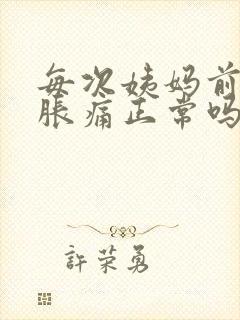 每次姨妈前
胀痛正常吗
許荣勇